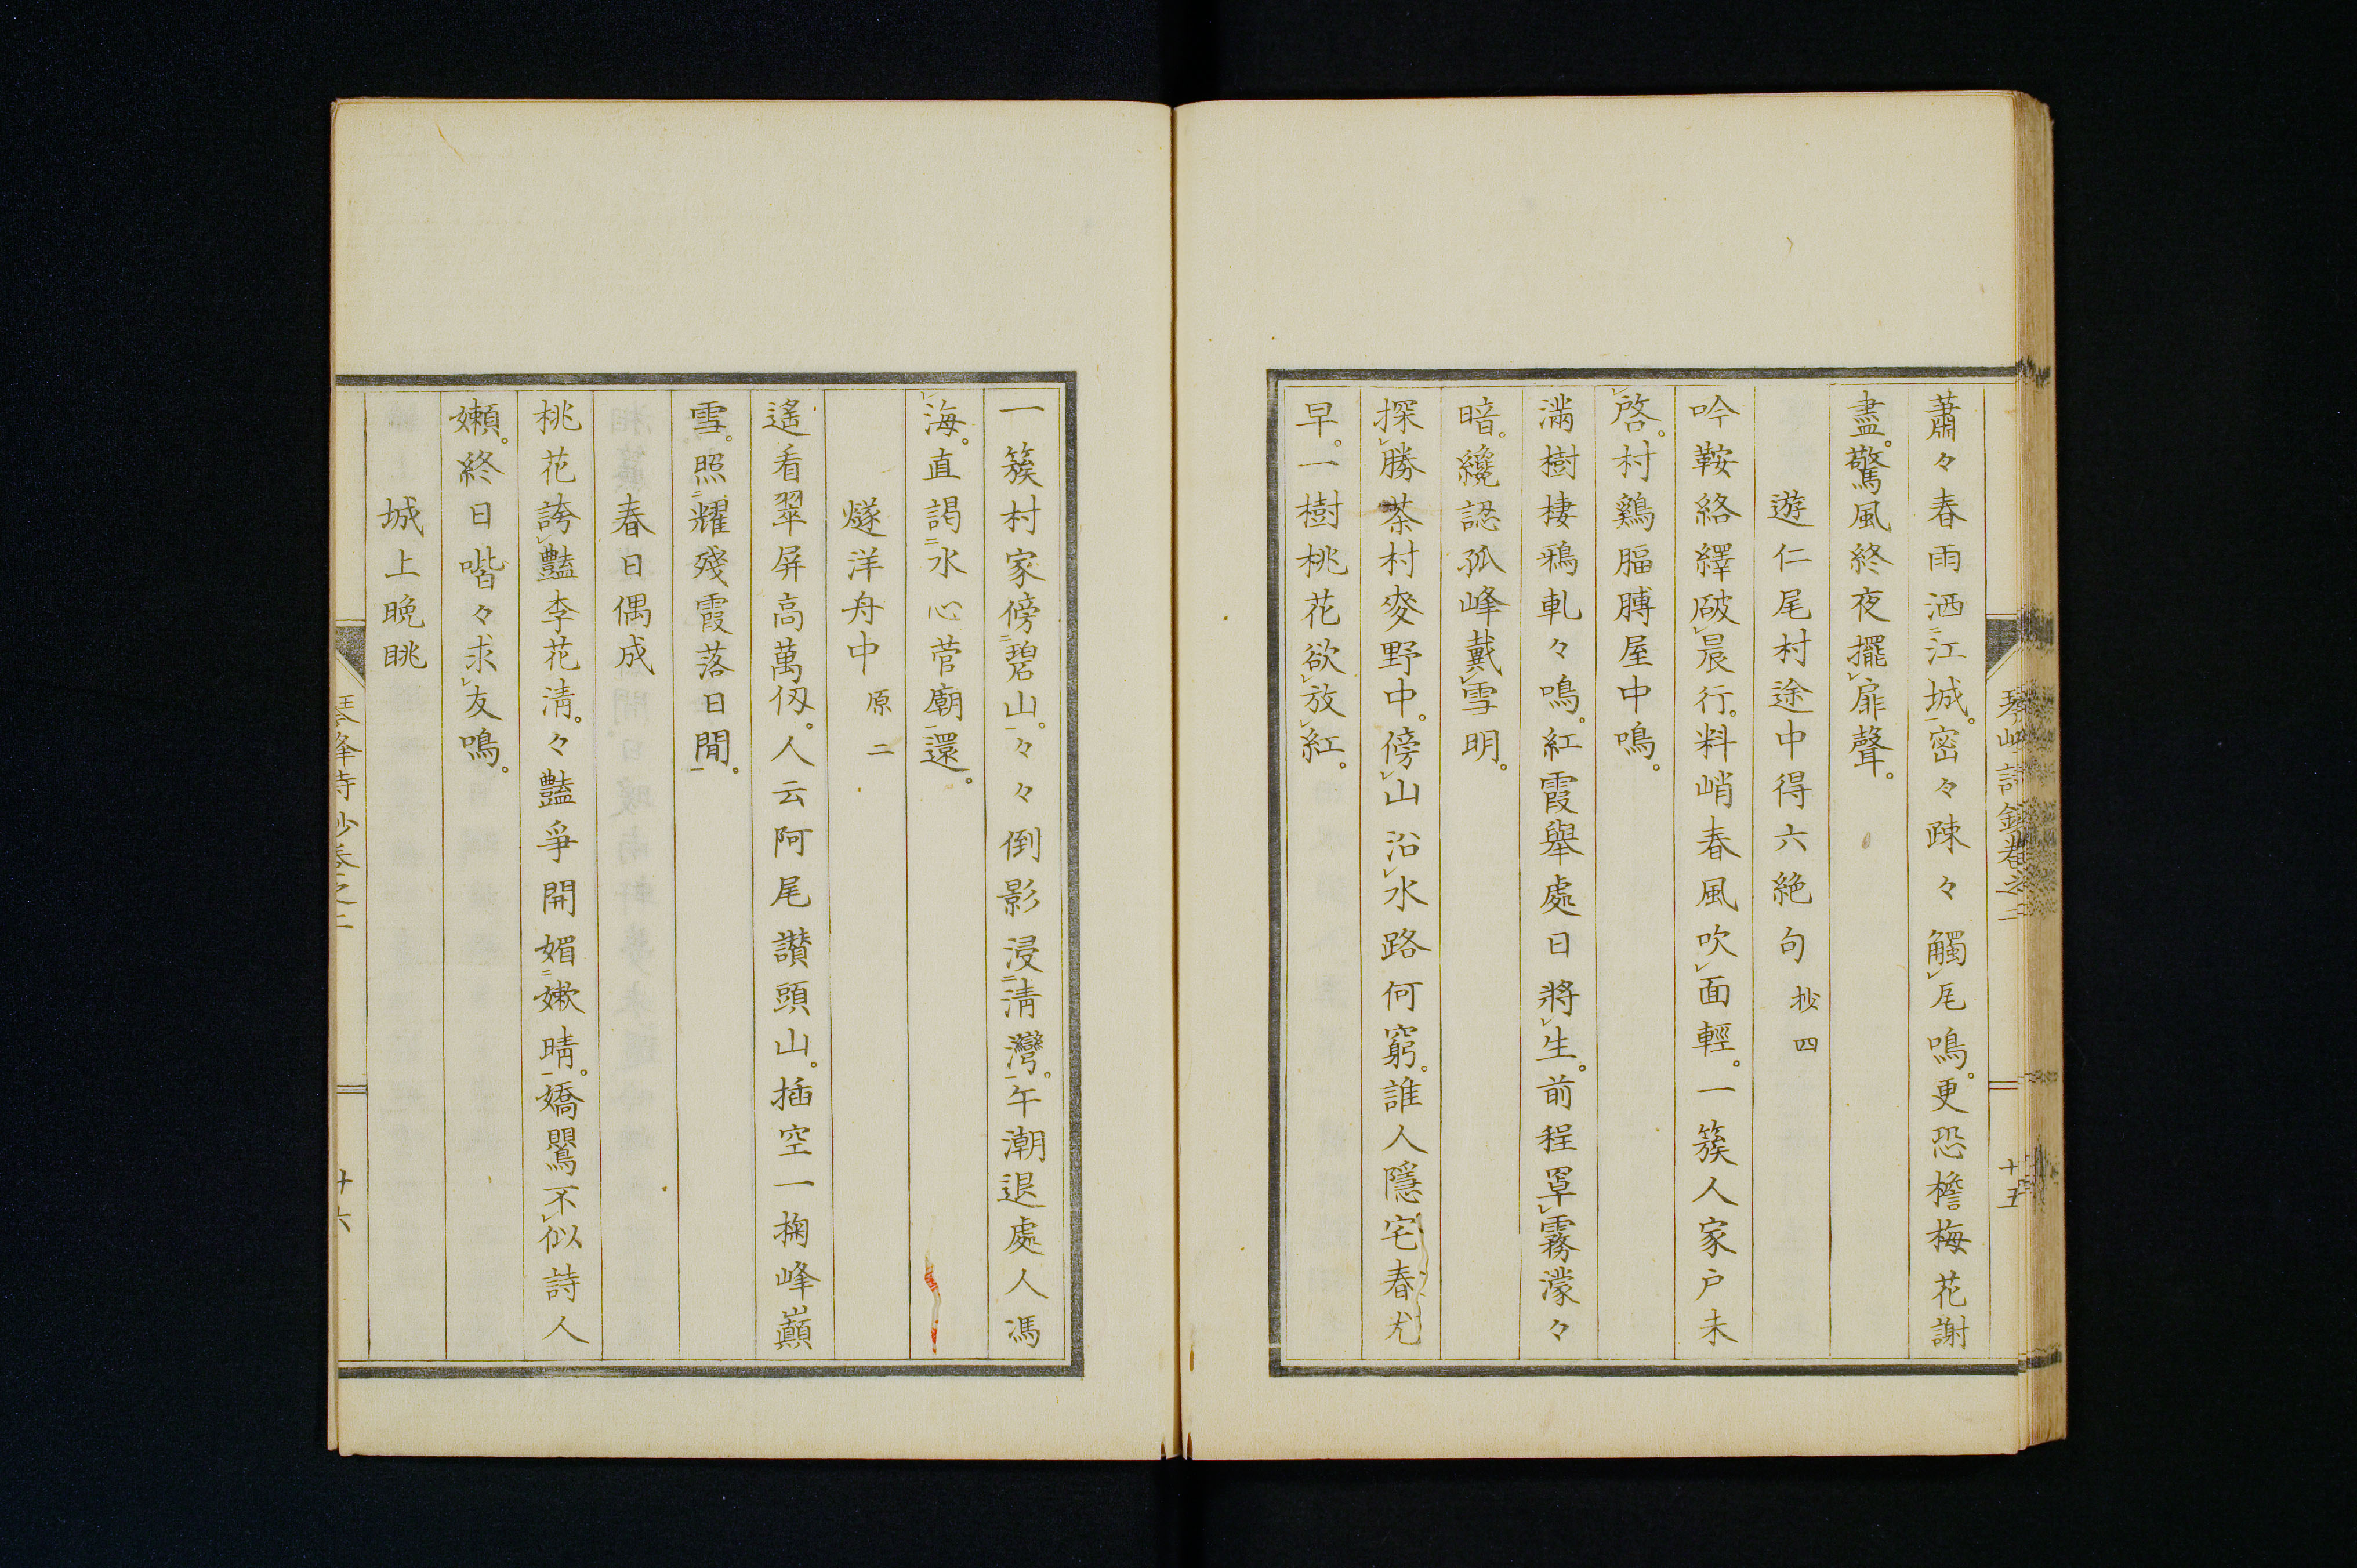 蕭々春雨洒㆓江城㆒。密々疎々觸㆑瓦鳴。更恐檐梅花謝
盡。驚風終夜擺㆑扉聲。
遊仁尾村途中得六絶句 抄四
吟鞍絡繹破㆑晨行。料峭春風吹㆑面輕。一簇人家戸未
㆑啓。村鷄腷膊屋中鳴。
滿樹棲鴉軋々鳴。紅霞舉處日將㆑生。前程罩㆑霧濛々
暗。纔認孤峰戴㆑雪明。
探㆑勝茶村麥野中。傍㆑山沿㆑水路何窮。誰人隱宅春尤
早。一樹桃花欲㆑放㆑紅。
琴峰詩鈔卷之二 十五
一簇村家傍㆓碧山㆒。々々倒影浸㆓清灣㆒。午潮退處人馮
㆑海。直謁㆓水心菅廟㆒還。
燧洋舟中 原二
遙看翠屏高萬仭。人云阿尾讃頭山。插空一掬峰巓
雪。照㆓耀殘霞落日間㆒。
春日偶成
桃花誇㆑豔李花清。々豔爭開媚㆓嫩晴㆒。嬌鸎不㆑似詩人
嬾。終日喈々求㆑友鳴。
城上晩眺
琴峰詩鈔卷之二 十六